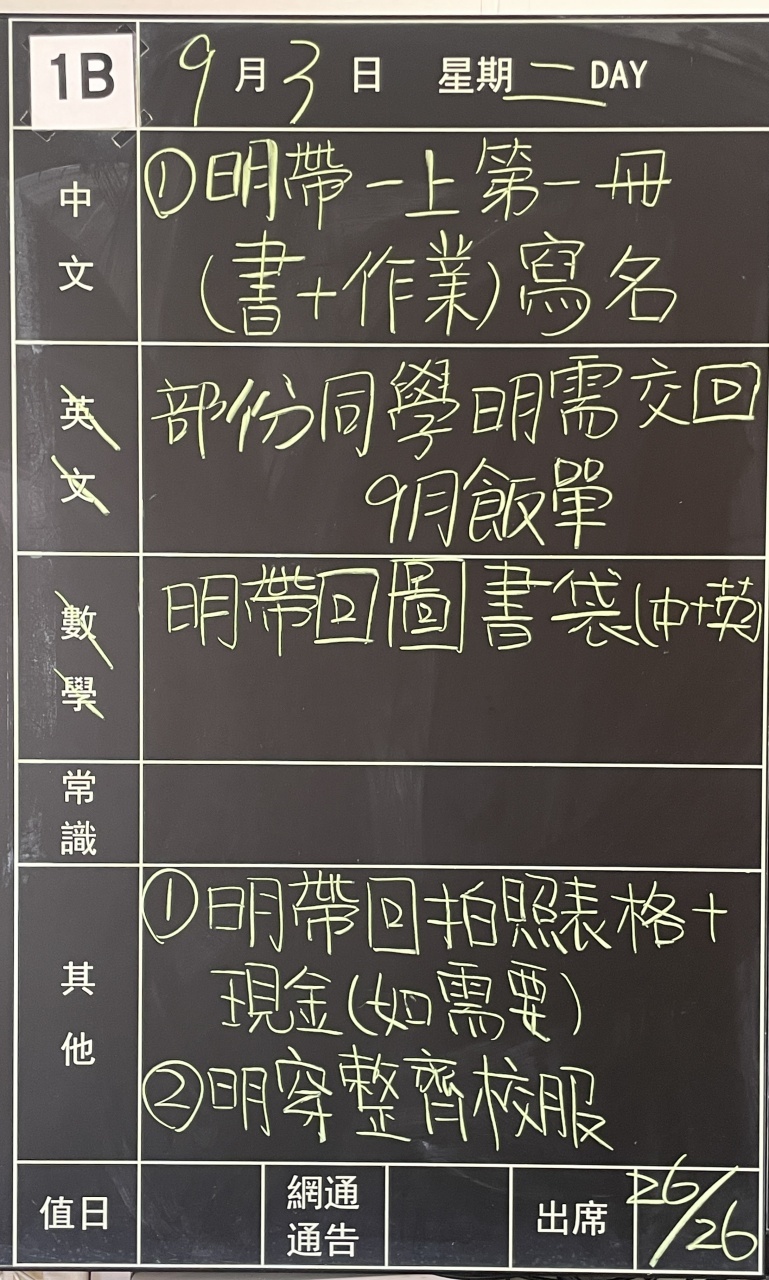 1B 9月3日 星期二DAY
中文
①明帶一上第一冊
(書+作業)寫名
英文
部份同學明需交回
9月飯單
數學
明帶回圖書袋(中+英)
常識
其他
①明帶回拍照表格+
現金(如需要)
②明穿整齊校服
值日 網通通告 出席 26/26